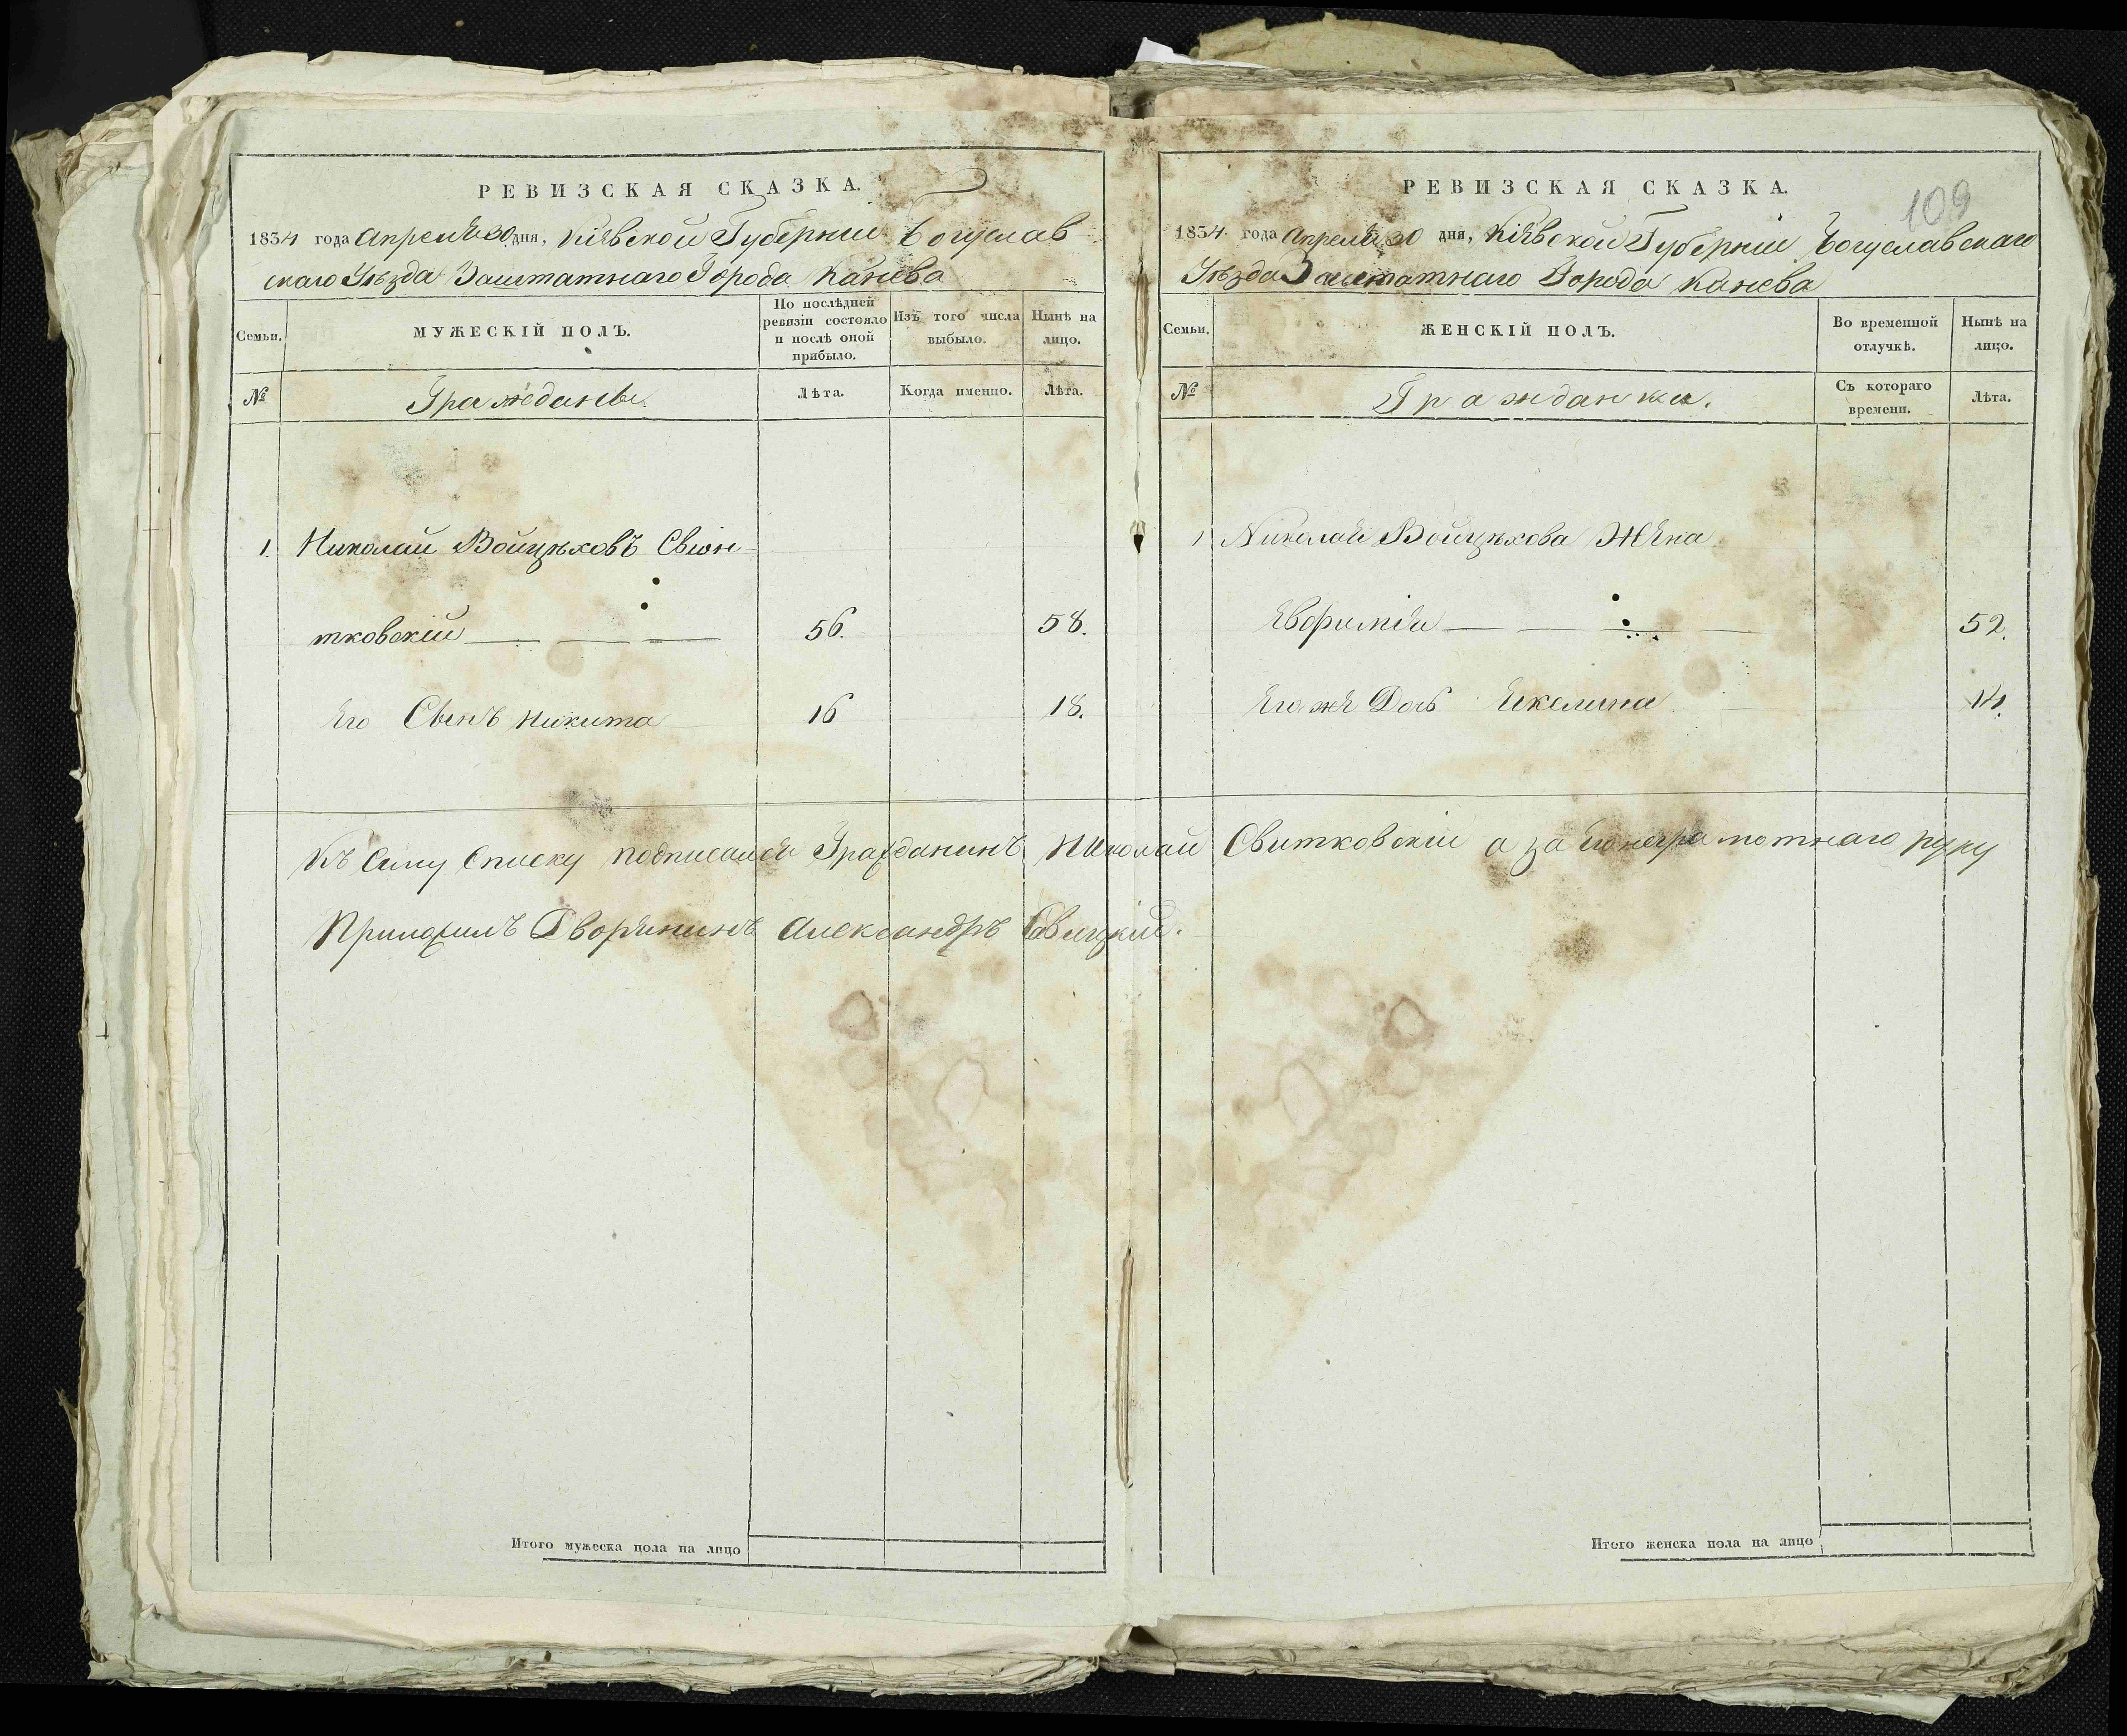 РЕВИЗСКАЯ СКАЗКА.
1834 года Апреля 30 дня, Кіевской Губерніи Богуслав
скаго Уѣзда Заштатнаго Города Канева
Семьи.
МУЖЕСКІЙ ПОЛЪ.
По послѣдней
ревизіи состояло
и послѣ оной
прибыло.
Изъ того числа
выбыло.
Нынѣ на
лицо.
№
Граждане
Лѣта.
Когда именно.
Лѣта.
1. Николай Войцѣховъ Свіон
тковскій 56. 58.
Его Сынъ Никита 16 18.
Итого мужеска пола на лицо
109
РЕВИЗСКАЯ СКАЗКА.
1834 года Апреля 30 дня, Кіевской Губерніи Богуславскаго
Уѣзда Заштатнаго Города Канева
Семьи.
ЖЕНСКІЙ ПОЛЪ.
Во временной
отлучкѣ.
Нынѣ на
лицо.
№
Гражданки.
Съ котораго
времени.
Лѣта.
1 Николая Войцѣхова Жена
Евфимія 52.
Его же Дочь 14.
Къ сему списку подписался Гражданинъ Николай Свитковскій а за его неграмотнаго руку
Приложилъ Дворянинъ Александръ
Итого женска пола на лицо